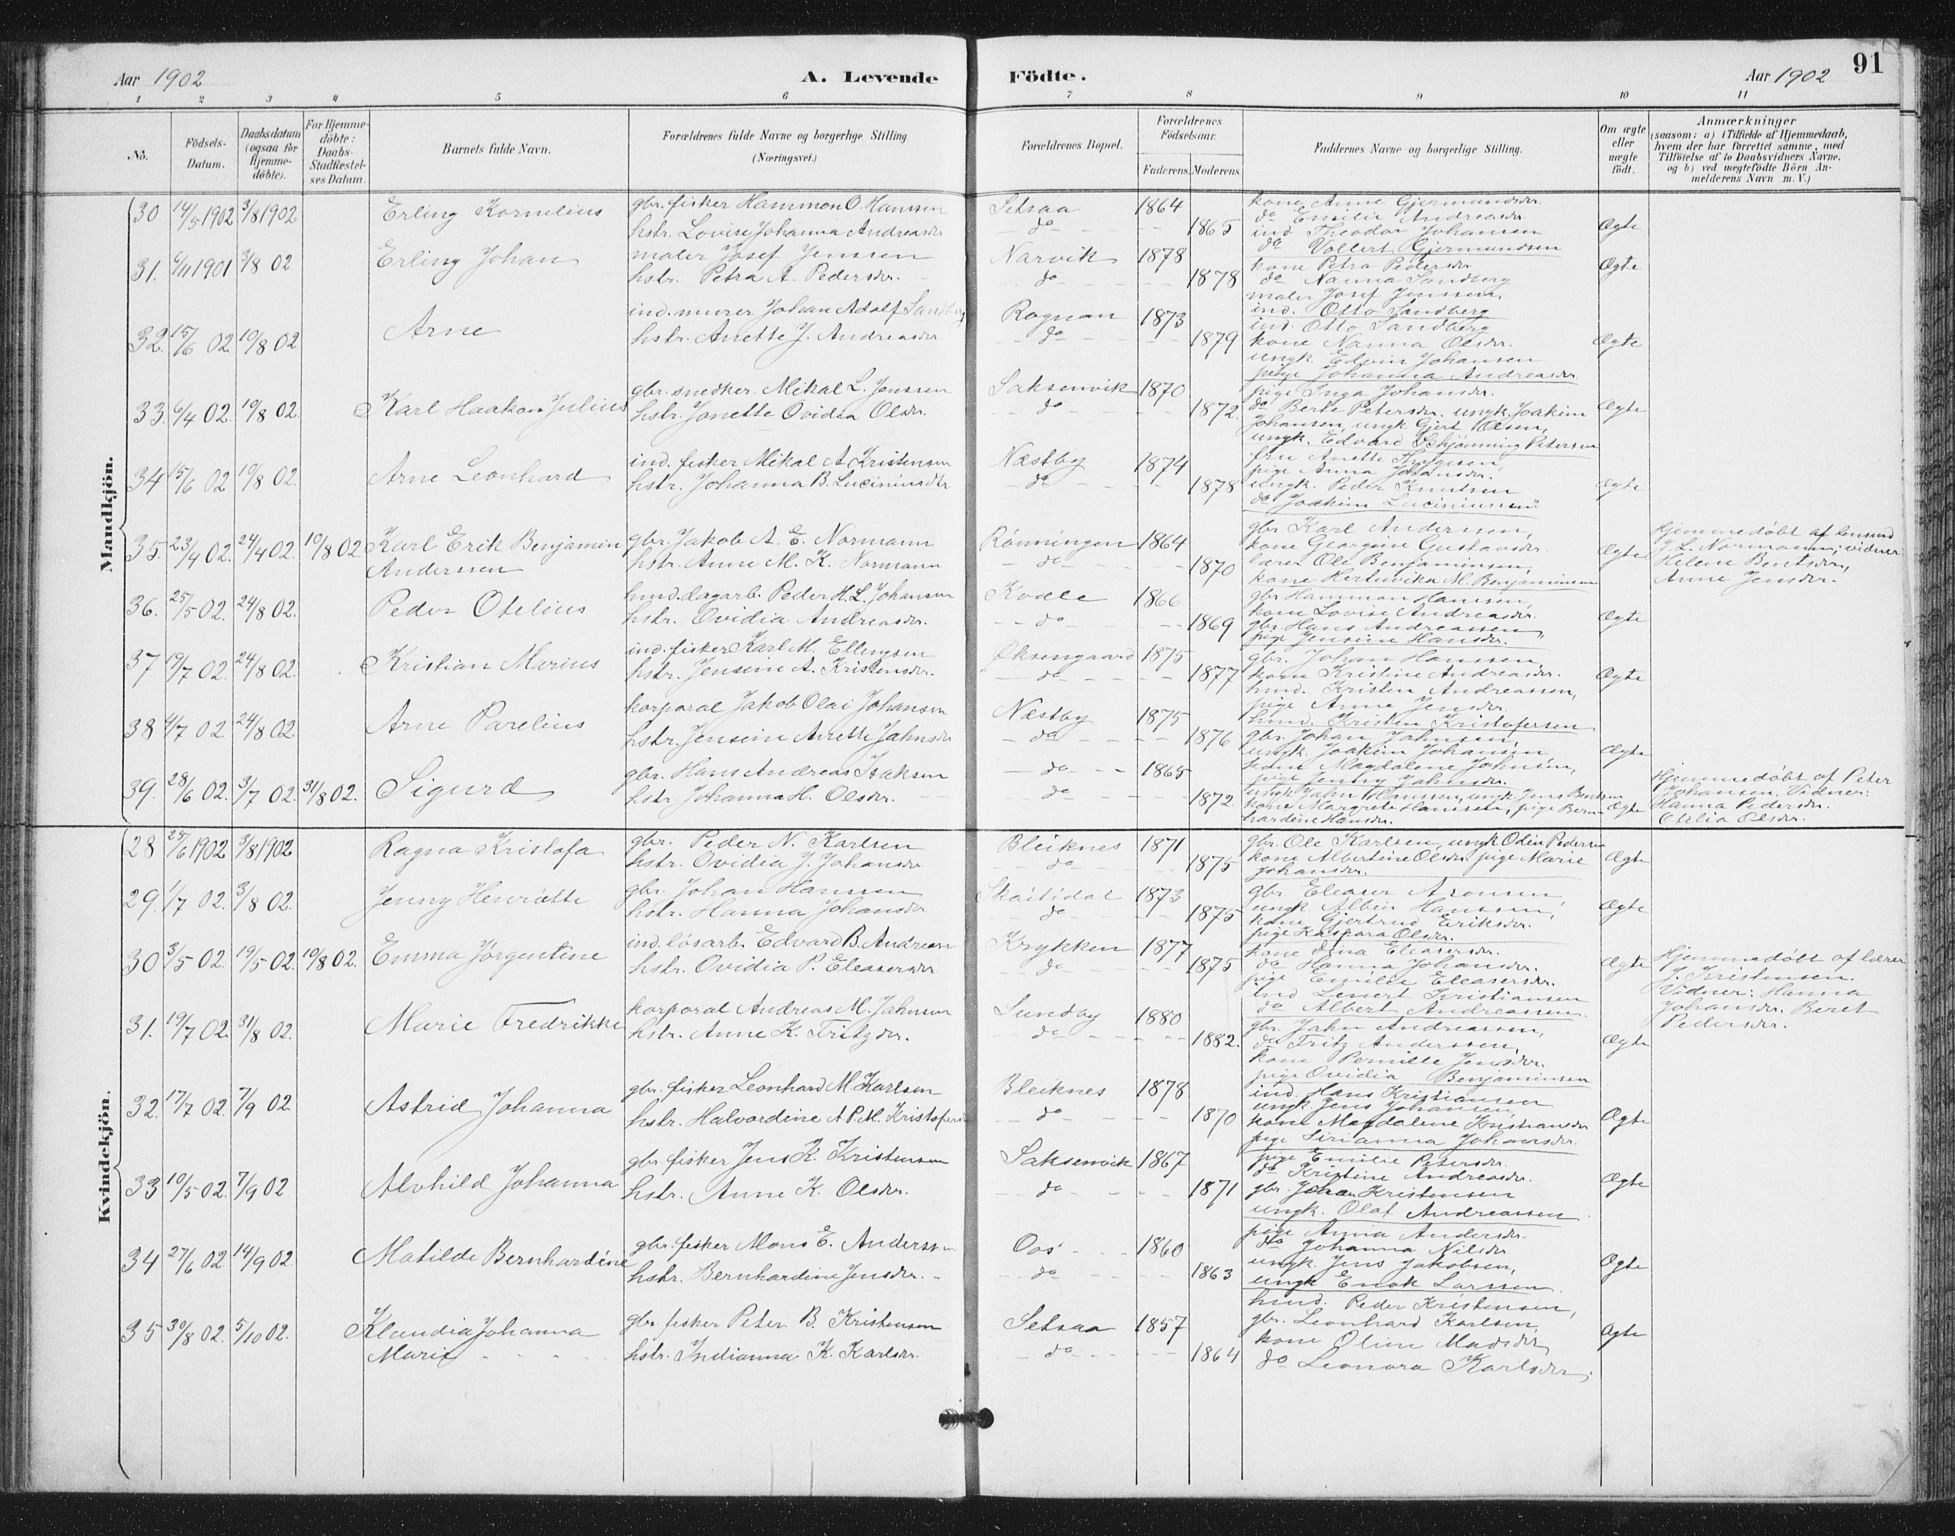 Aar 1902
A. Levende
Födte.
Aar 1902
91
1 2 3 4 5 6 7 8 9 10 11
No.
Födsels-Datum.
Daabsdatum (ogsaa for Hjemme-döbte).
For Hjemme-döbte: Daabs-Stadfæstel-ses Datum.
Barnets fulde Navn.
Forældrenes fulde Navne og borgerlige Stilling (Næringsvei.)
Forældrenes Bopæl.
Forældrenes Födselsaar.
Faderens. Moderens.
Faddernes Navne og borgerlige Stilling.
Om ægte eller uægte födt.
Anmærkninger
(saasom: a) i Tilfælde af Hjemmedaab, hvem der har forrettet samme, med Tilföielse af to Daabsvidners Navne, og b) ved uægtefödte Börn An-melderens Navn m. V.)
Mandkjön.
30 14/5 1902 3/8 1902 Erling Kornelius gbr. fisker Hammon O. Hanssen Setsaa 1864 kone Anne Gjermundsdr.
do Emilie Andreasdr.
hstr. Lovise Johanna Andreasdr do 1865 ind. Theodor Johansen Ægte
do Vollert Gjermundsen
31. 6/11 1901 3/8 02 Erling Johan maler Josef Jenssen Narvik 1878 kone Petra Pedersdr. Ægte
hstr. Petra A. Pedersdr. do 1878 do Nanna Sandberg
maler Josef Jenssen,
ind. Otto Sandberg
32. 15/6 02 10/8 02 Arne ind. murer Johan Adolf Sandberg Rognan 1873 ind. Otto Sandberg
hstr. Anette J. Andreasdr do 1879 kone Nanna Olsdr. Ægte
ungk. Edvin Johansen
pige Johanna Andreasdr.
33. 6/4 02 10/8 02. Karl Haakon Julius gbr. snedker Mikal L. Jenssen Saksenvik 1870 pige Inga Johansdr.
hstr. Jonette Ovidia Olsdr. do 1872. do Berte Petersdr. ungk. Joakim Ægte
Johansen, ungk. Gjert Olsen,
ungk. Edvard Schjønning Petersen
34 15/6 02 10/8 02. Arne Leonhard ind. fisker Mikal A. Kristensen Næstby 1874 Anette
pige Anna
hstr. Johanna B. Luciniusdtr. do 1878 ungk. Peder Knutsen Ægte
do Joakim Luciniussen
35. 23/4 02. 24/4 02. 10/8 02 Karl Erik Benjamin gbr. Jakob A. E. Normann Rönningen 1864 gbr. Karl Andersen,
kone Georgine Gustavsdr.
Anderssen hstr. Anne M. K. Normann do 1870 lærer Ole Benjaminsen, Ægte
kone M. Benjaminsen
Hjemmedøbt af
J. L. Normann, vidner
Helene Bentsdr.,
Anne Jensdr.
36. 25/5 02. 24/8 02. Peder Otelius hmd. dagarb. Peder H. L. Johansen Kvæle 1866 gbr Hammon Hanssen,
kone Lovise Andreasdr.
hstr. Ovidia Andreasdr. do 1869 gbr. Hans Andreassen, Ægte
pige Jensine Hansdr.
37 19/7 02. 24/8 02. Kristian Marius ind. fisker Karl M. Ellingsen Øksengaard 1875 gbr. Johan Hanssen,
hstr. Jensine A. Kristensdr. do 1877 kone Kristine Andreasdr. Ægte
hmd. Kristen Andreassen,
pige Anne Jensdr.
38 4/7 02 24/8 02. Arne Parelius korporal Jakob Olai Johansen Næstby 1875 hmd. Kristen Kristofersen
hstr. Jensine Anette Jahnsdr do 1876 gbr. Johan Jahnsen,
ungk. Joakim Johansen, Ægte
kone Magdalene Jahnsen,
pige Jenny Jahnsdr.
39. 28/6 02. 3/7 02. 31/8 02. Sigurd gbr. Hans Andreas Isaksen do 1865
hstr. Johanna H. Olsdr. do 1872. ungk. Jahn Hanssen, ungk. Jens Bentsen
kone Margrete Hanssen, pige Bern- Ægte
hardine Hansdr.
Hjemmedøbt af Peter
Johansen. Vidner:
Hanna Pedersdr.
Otelia Olsdr.
Kvindekjön.
28 25/6 1902 3/8 1902 Ragna Kristofa gbr. Peder N. Karlsen Bleiknes 1871 gbr. Ole Karlsen, ungk. Odin Pedersen
hstr. Ovidia J. Johansdr do 1875 kone Albertine Olsdr. pige Marie Ægte
Johansdr.
29. 1/7 02. 3/8 02. Jenny Henriette gbr. Johan Hanssen Skaitidal 1873 gbr. Eleaser Aronsen,
hstr. Hanna Johansdr. do 1875 ungk. Albin Hanssen, Ægte
kone Gjertrud Eriksdr.
pige Kaspara Olsdr.
30 3/5 02. 19/5 02. 10/8 02. Emma Jørgentine ind. løsarb. Edvard B. Andreasen Krykken 1877 kone Ena Eleasersdr.
hstr. Ovidia P. Eleasersdr. do 1875 do Hanna Johansdr. Ægte
pige Emilie Eleasersdr.
ind Lenert Kristiansen
do Albert Andreassen.
Hjemmedøbt af lærer
J. Kristensen.
Vidner: Hanna
Johansdr. Beret
Pedersdr.
31. 19/7 02. 31/8 02. Marie Fredrikke korporal Andreas M. Jahnsen Sundby 1880 gbr. Jahn Andreassen,
hstr. Anne K. Fritzdr. do 1882. do Fritz Anderssen, Ægte
kone Pernille Jensdr.
pige Ovidia Benjaminsen
32. 17/7 02 7/9 02. Astrid Johanna gbr. fisker Leonhard M. Karlsen Bleiknes 1878 ind. Hans Kristiansen
ungk. Jens Johansen,
hstr. Halvardine A. P. M. Kristofersdr do 1870 kone Magdalene Kristiansdr Ægte
pige Sirianna Johansdr.
33 10/5 02 7/9 02 Alvhild Johanna gbr. fisker Jens K. Kristensen Saksenvik 1867 pige Emilie Petersdr.
do Kristine Andreasdr.
hstr. Anne K. Olsdr. do 1871 gbr. Johan Kristensen Ægte
ungk. Olaf Andreassen
34 27/6 02 14/9 02. Matilde Bernhardine gbr. fisker Mons E. Anderssen Oos 1860 pige Anna Andersdr.
do Johanna Nilsdr
hstr. Bernhardine Jensdr. do 1863 ungk. Jens Jakobsen, Ægte
ungk Enok Larssen.
35 30/8 02. 5/10 02. Klaudia Johanna gbr. fisker Peter B. Kristensen Setsaa 1857 hmd. Peder Kristensen,
gbr. Leonhard Karlsen,
Marie hstr. Indianna K. Karlsdr. do 1864 kone Oline Madsdr. Ægte
do Leonora Karlsdr.